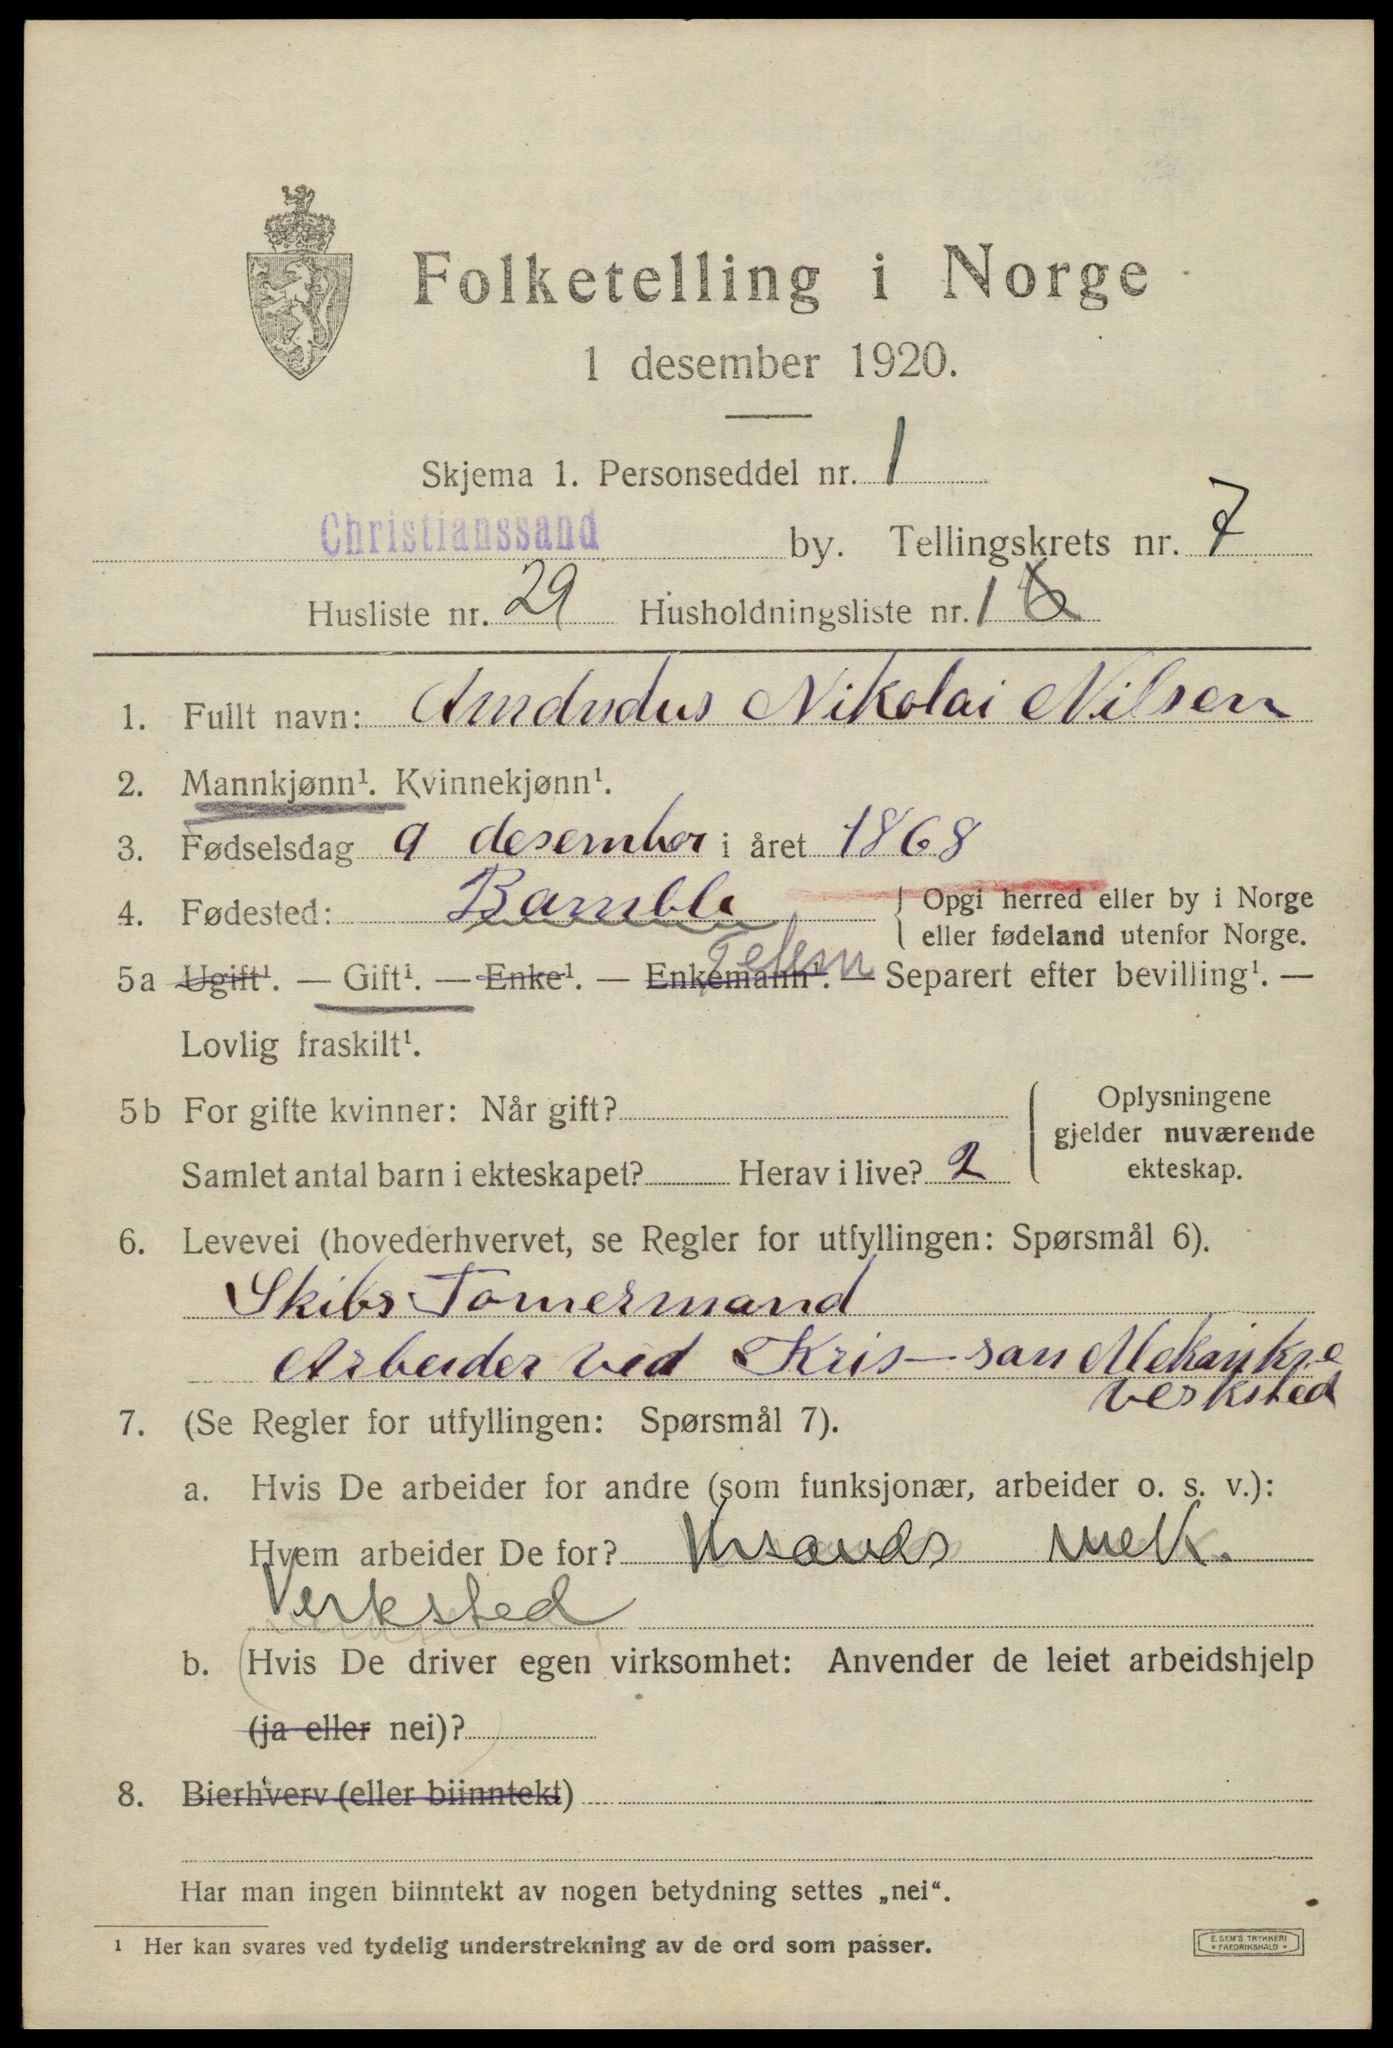 Folketelling i Norge
1 desember 1920.
Skjema 1. Personseddel nr. 1
Christianssand by. Tellingskrets nr. 7
Husliste nr. 29 Husholdningsliste nr. 1 6
1. Fullt navn: Amdudus Nikolai Nilsen
2. Mannkjønn¹. Kvinnekjønn¹.
3. Fødselsdag 9 desember i året 1868
4. Fødested: Bamble { Opgi herred eller by i Norge
eller fødeland utenfor Norge.
Telem
5a Ugift¹. — Gift¹. — Enke¹. — Enkemann¹. — Separert efter bevilling¹. —
Lovlig fraskilt¹.
5b For gifte kvinner: Når gift?
Samlet antal barn i ekteskapet? Herav i live? 2
{ Oplysningene
gjelder nuværende
ekteskap.
6. Levevei (hovederhvervet, se Regler for utfyllingen: Spørsmål 6).
Skibs Tomermand
Arbeider ved Kris—san Mekankse
verksted
7. (Se Regler for utfyllingen: Spørsmål 7).
a. Hvis De arbeider for andre (som funksjonær, arbeider o. s. v.):
Hvem arbeider De for? Krsands mek.
Verksted
b. Hvis De driver egen virksomhet: Anvender de leiet arbeidshjelp
(ja eller nei)?
8. Bierhverv (eller biinntekt)
Har man ingen biinntekt av nogen betydning settes „nei“.
¹ Her kan svares ved tydelig understrekning av de ord som passer.
E. SEM'S TRYKKERI
FREDRIKSHALD